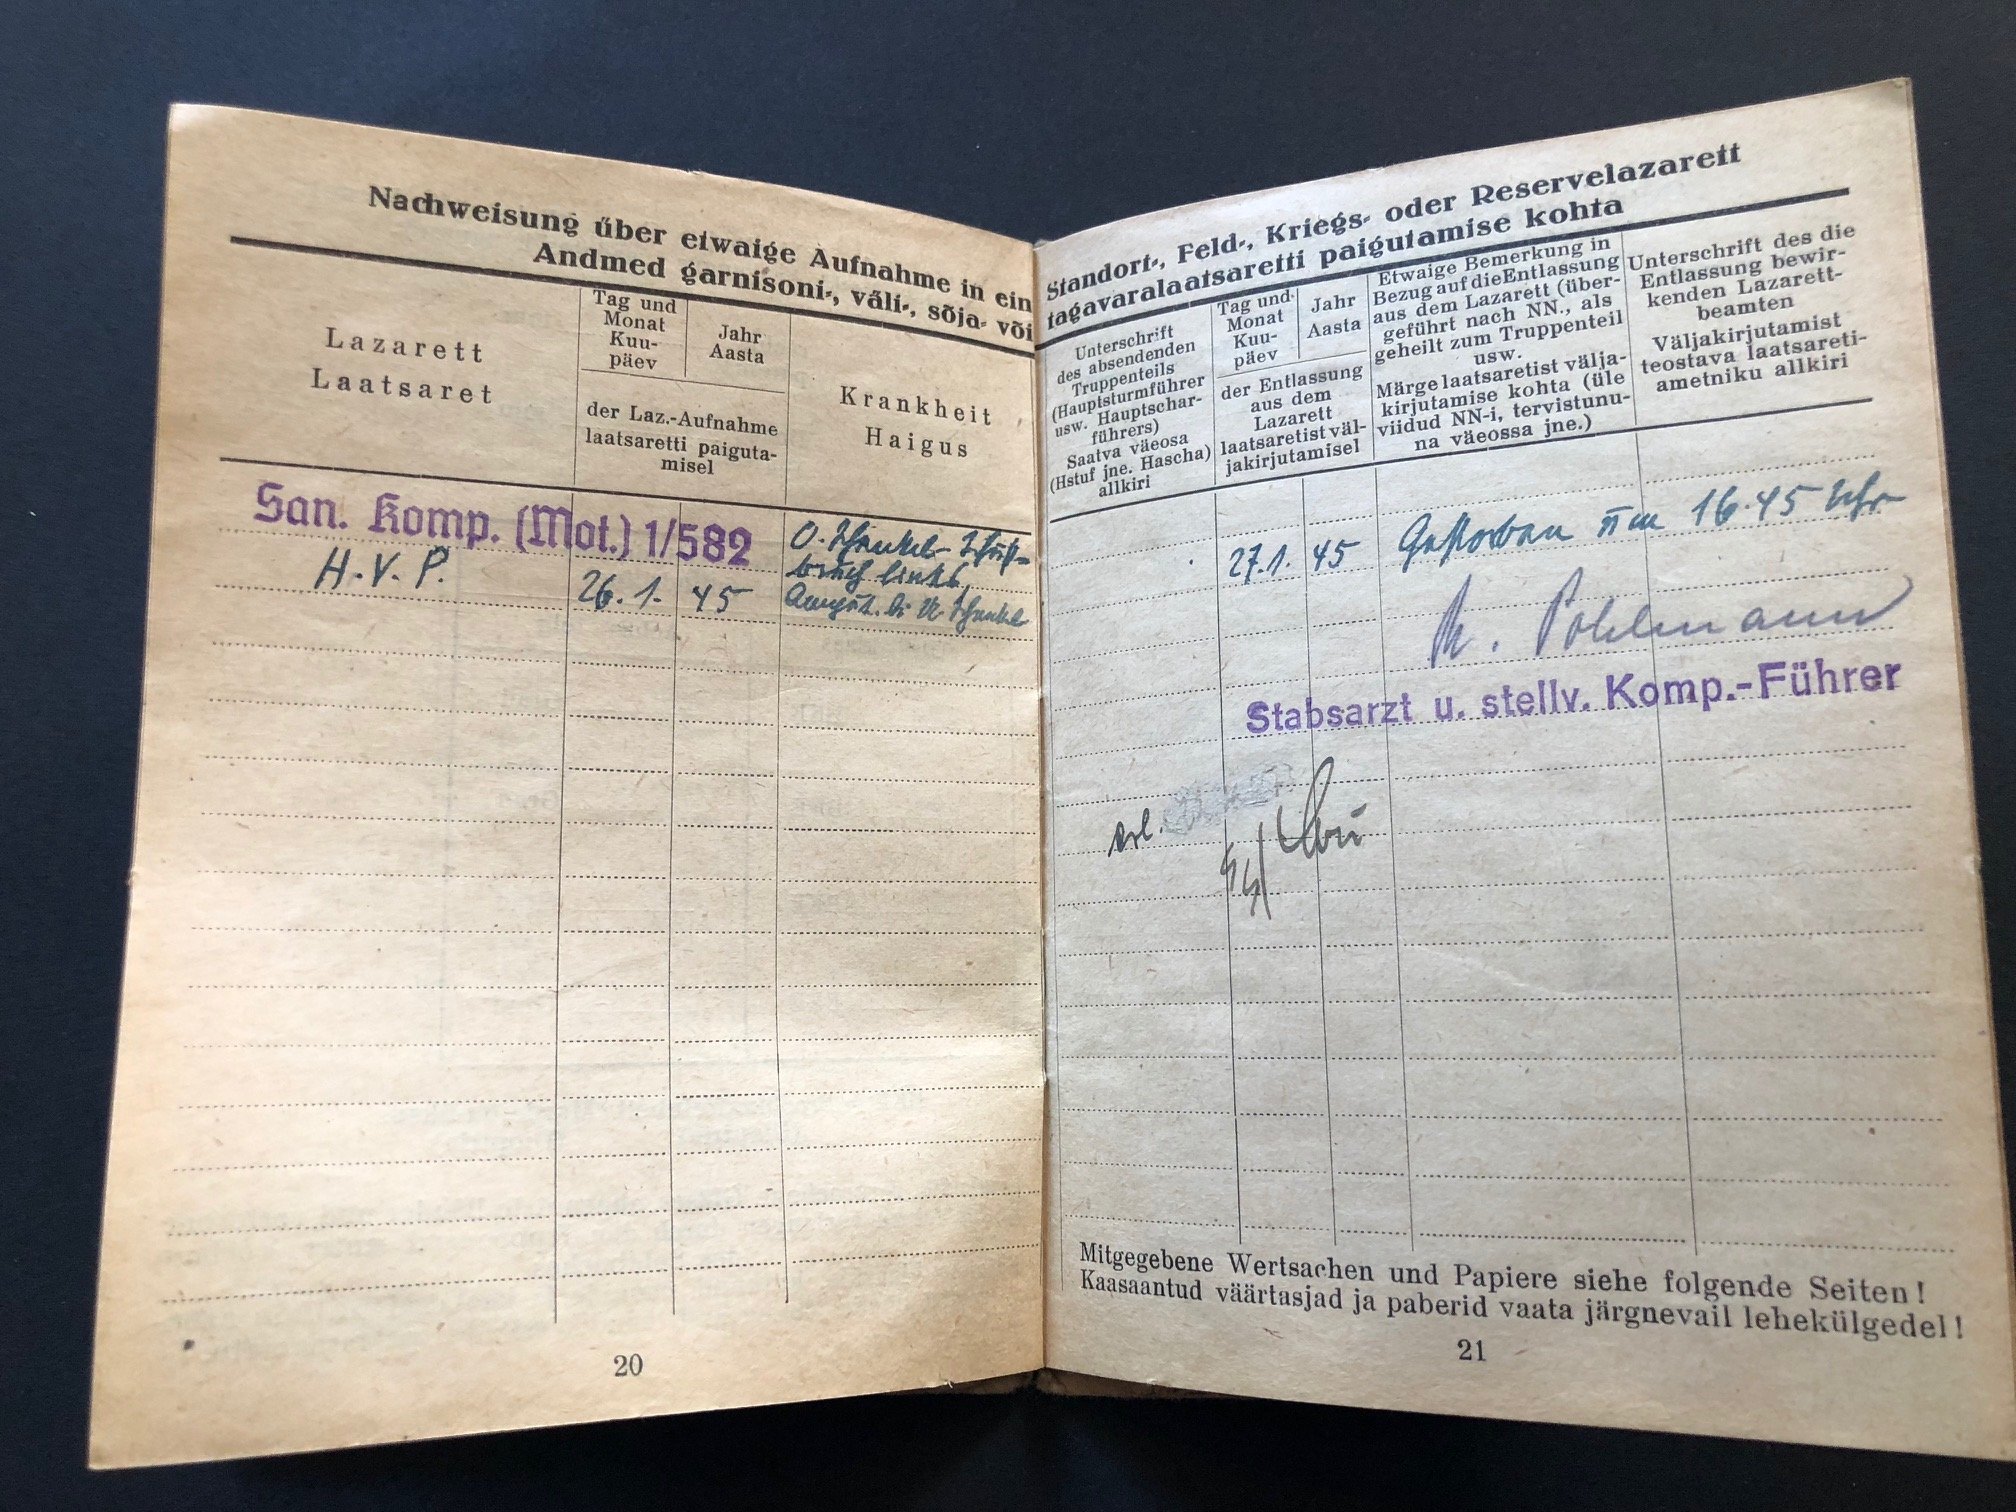 Nachweisung über etwaige Aufnahme in ein
Andmed garnisoni-, väli-, sõja- või
Lazarett
Laatsaret
Tag und
Monat
Kuu-
päev
Jahr
Aasta
der Laz.-Aufnahme
laatsaretti paiguta-
misel
Krankheit
Haigus
San. Komp. (Mot.) 1/582
H.V.P.
26.1. 45
O. Schenkel-Schuß-
bruch links,
Amput. li. U. Schenkel
20
Standort-, Feld-, Kriegs- oder Reservelazarett
tagavaralaatsaretti paigutamise kohta
Unterschrift
des absendenden
Truppenteils
(Hauptsturmführer
usw. Hauptschar-
führers)
Saatva väeosa
(Hstuf jne. Hascha)
allkiri
Tag und
Monat
Kuu-
päev
Jahr
Aasta
der Entlassung
aus dem
Lazarett
laatsaretist väl-
jakirjutamisel
Etwaige Bemerkung in
Bezug auf die Entlassung
aus dem Lazarett (über-
geführt nach NN., als
geheilt zum Truppenteil
usw.
Märge laatsaretist välja-
kirjutamise kohta (üle
viidud NN-i, tervistunu-
na väeossa jne.)
Unterschrift des die
Entlassung bewir-
kenden Lazarett-
beamten
Väljakirjutamist
teostava laatsareti-
ametniku allkiri
27.1. 45 Gestorben um 16.45 Uhr
Pohlmann
Stabsarzt u. stellv. Komp.-Führer
erl.
Mitgegebene Wertsachen und Papiere siehe folgende Seiten!
Kaasaantud väärtasjad ja paberid vaata järgnevail lehekülgedel!
21